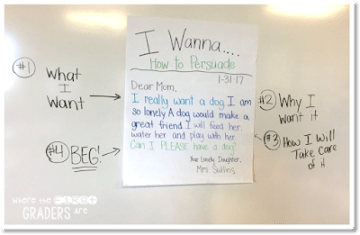 I Wanna....
How to Persuade
1-31-17
Dear Mom,
I really want a dog. I am
so lonely. A dog would make a
great friend. I will feed her
water her and play with her.
Can I PLEASE have a dog?
Your Lonely Daughter,
Mrs.
#1
What
I
Want
#4 BEG!
#2 Why I
Want it
#3 How I Will
Take Care
of it
where the FIRST
GRADERS are